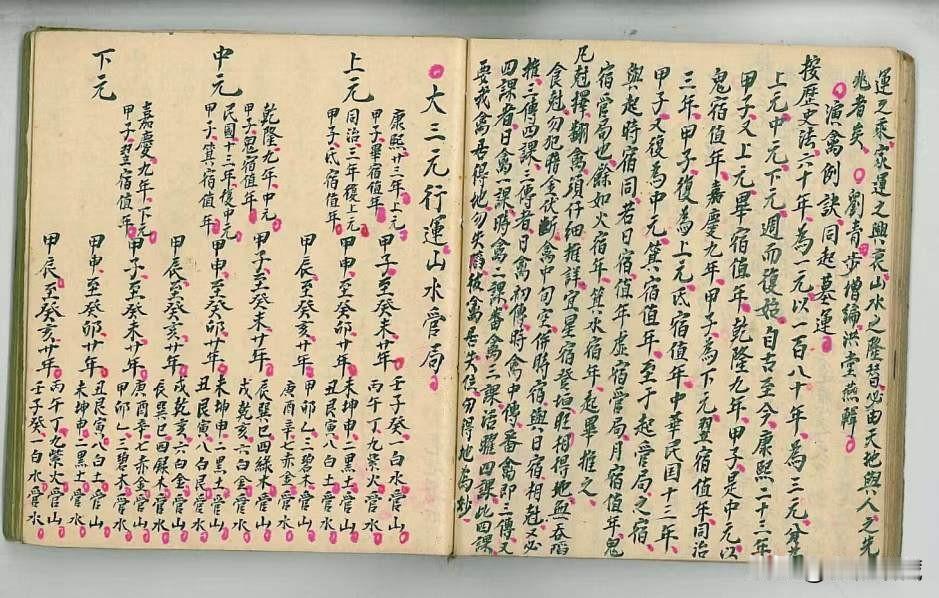 運之乘家運之興衰山水之隆替必由天地與人之先
兆者矣 劉青步增編洪堂燕解
演禽例訣同起墓運
按歷史法六十年為一元以一百八十年為三元分為
上元中元下元週而復始自古至今康熙二十三年
甲子又上元畢宿值年乾隆九年甲子是中元以
鬼宿值年嘉慶九年甲子為下元翌宿值年同治
三年甲子復為上元氐宿值年中華民国十三年
甲子又復為中元箕宿值年至于起管局之宿
與起時宿同若日宿值年虛宿管局月宿值年鬼
宿管局也餘如火宿年箕水宿年起畢推之
凡尅擇翻禽須仔細推詳宜星宿登垣旺相得地無吞啗
食尅勿犯暗金伏斷禽中旬空併時宿與日宿相尅又必
推三傳四課三傳者日禽初傳時禽中傳番禽即三傳又
四課者日禽一課時禽二課番禽三課活曜四課此四課
要我禽居得地勿失陷彼禽居失位勿得地為妙
大三元行運山水管局
上元
康熙廿三年上元
甲子畢宿值年
同治三年復上元
甲子氐宿值年
甲子至癸未廿年
壬子癸一白水管山
丙午丁九紫火管水
甲申至癸卯廿年
未坤申二黑土管山
丑艮寅八白土管水
甲辰至癸亥廿年
甲卯乙三碧木管山
庚酉辛七赤金管水
中元
乾隆九年中元
甲子鬼宿值年
民國十三年復中元
甲子箕宿值年
甲子至癸未廿年
辰巽巳四綠木管山
戌乾亥六白金管水
甲申至癸卯廿年
未坤申二黑土管山
丑艮寅八白土管水
甲辰至癸亥廿年
戌乾亥六白金管山
辰巽巳四綠木管水
下元
嘉慶九年下元
甲子翌宿值年
甲子至癸未廿年
庚酉辛七赤金管山
甲卯乙三碧木管水
甲申至癸卯廿年
丑艮寅八白土管山
未坤申二黑土管水
甲辰至癸亥廿年
丙午丁九紫火管山
壬子癸一白水管水